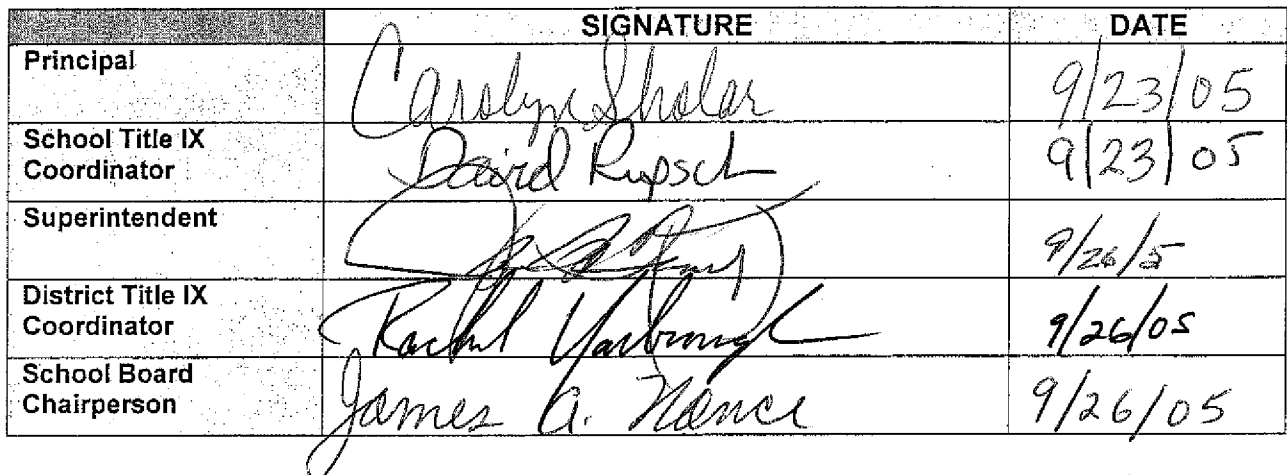 SIGNATURE DATE
Principal Carolyn Sholar 9/23/05
School Title IX
Coordinator David Rupsch 9/23/05
Superintendent 9/26/5
District Title IX
Coordinator Rachel Yarbrough 9/26/05
School Board
Chairperson James A. Nance 9/26/05